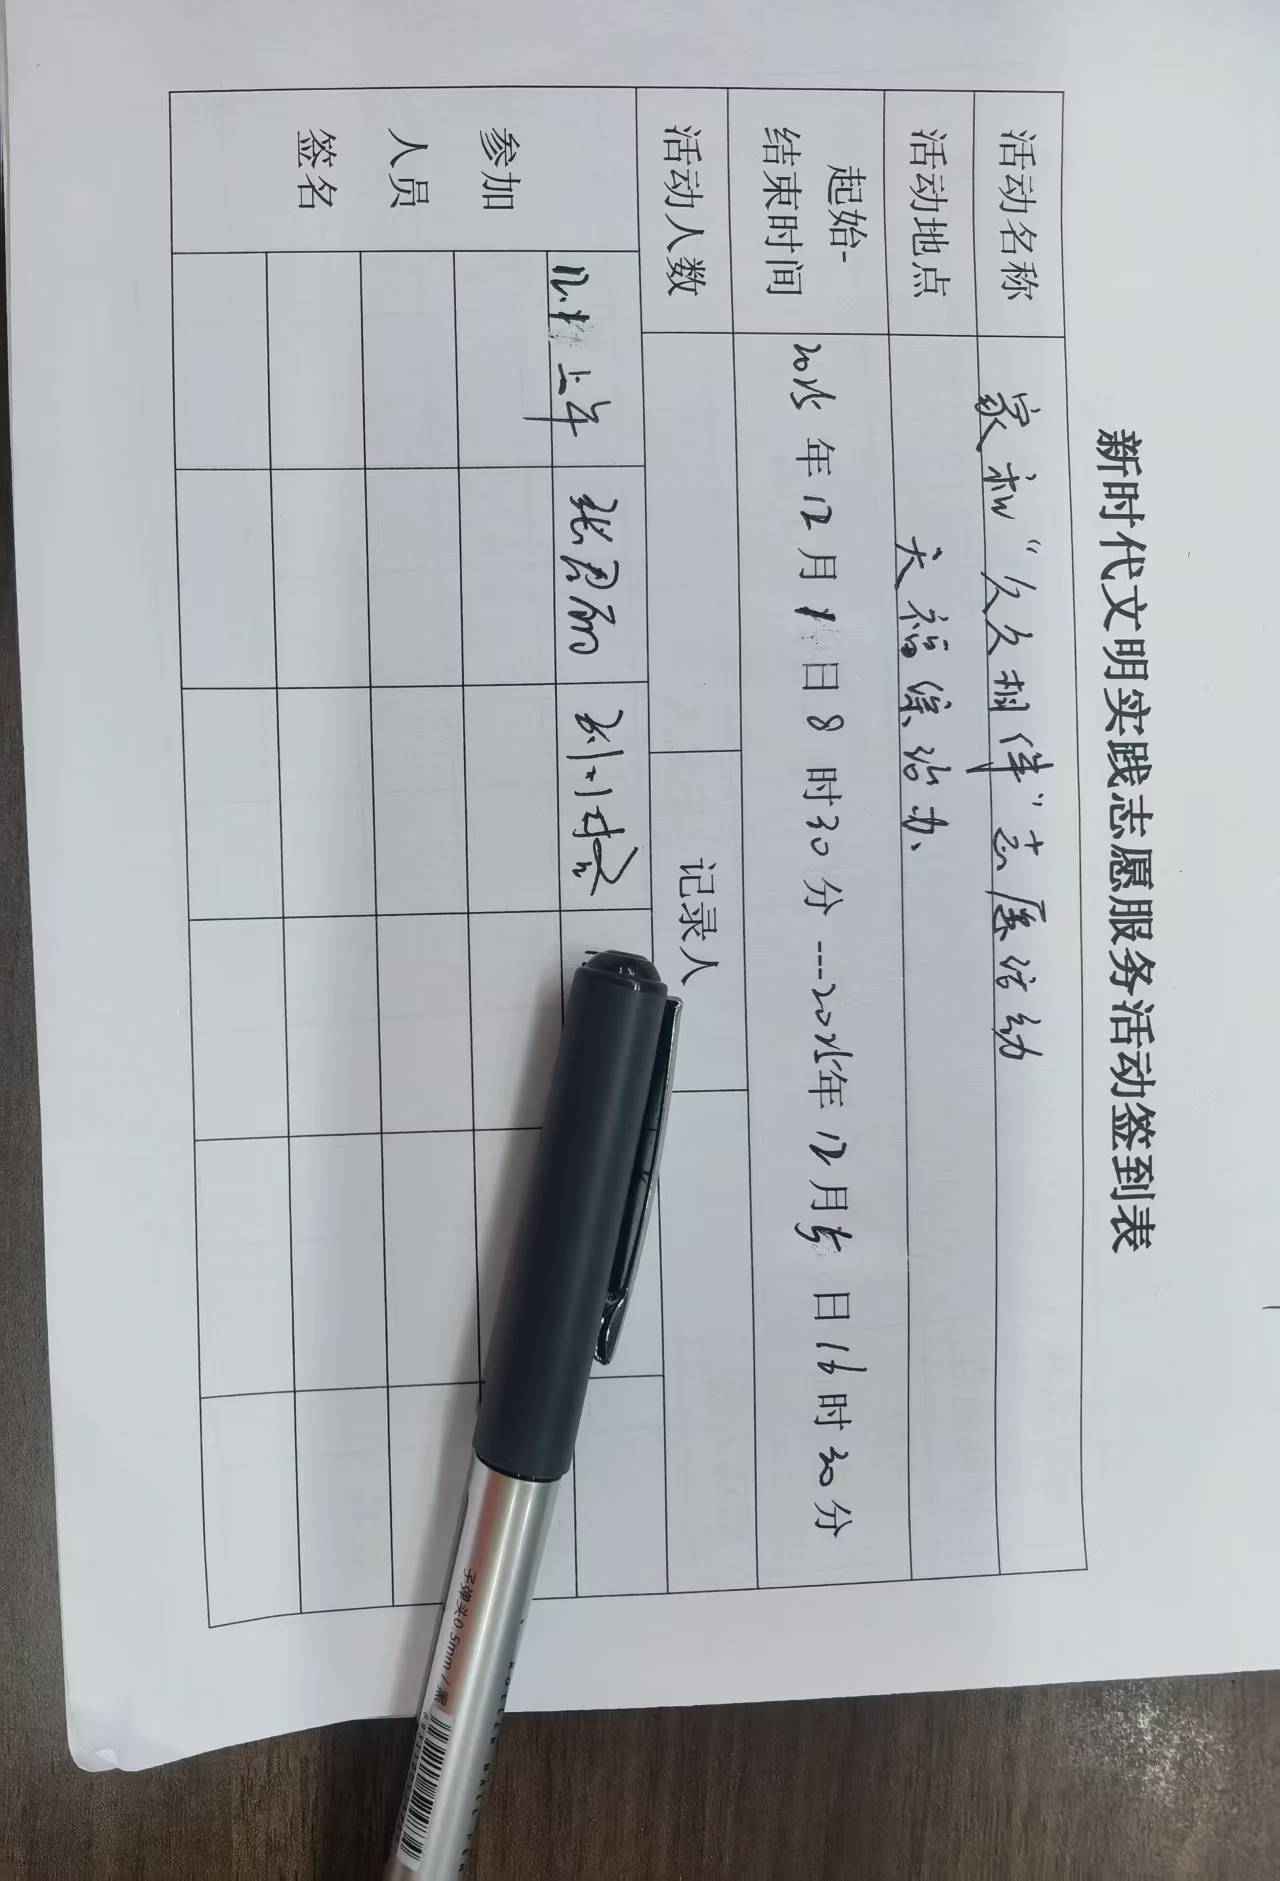 新时代文明实践志愿服务活动签到表
活动名称 家和“久久相伴”志愿活动
活动地点 大福综治办
起始-
结束时间 2025年12月1日8时30分---2025年12月5日16时30分
活动人数 记录人
参加
人员
签名
12.1 上午
子弹头0.5mm / 黑